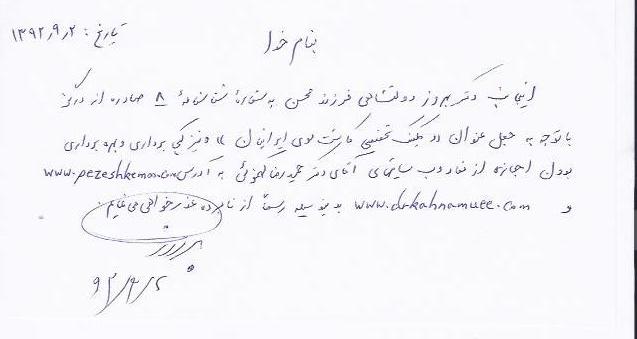 تاریخ: ۱۳۹۲٫۹٫۲
بنام خدا
اینجانب دکتر بهروز دولتشاهی فرزند محسن به شماره شناسنامه ۸ صادره از درگز
با توجه به جعل عنوان «کلینیک تخصصی کاشت موی ایرانیان» و نیز کپی برداری و بهره برداری
بدون اجازه از مفاد وب سایتهای آقای دکتر حمیدرضا کهنموئی به آدرس www.pezeshkemoo.com
و www.drkahnamuee.com بدینوسیله رسماً از نامبرده عذرخواهی می نمایم.
۹۲/۹/۲